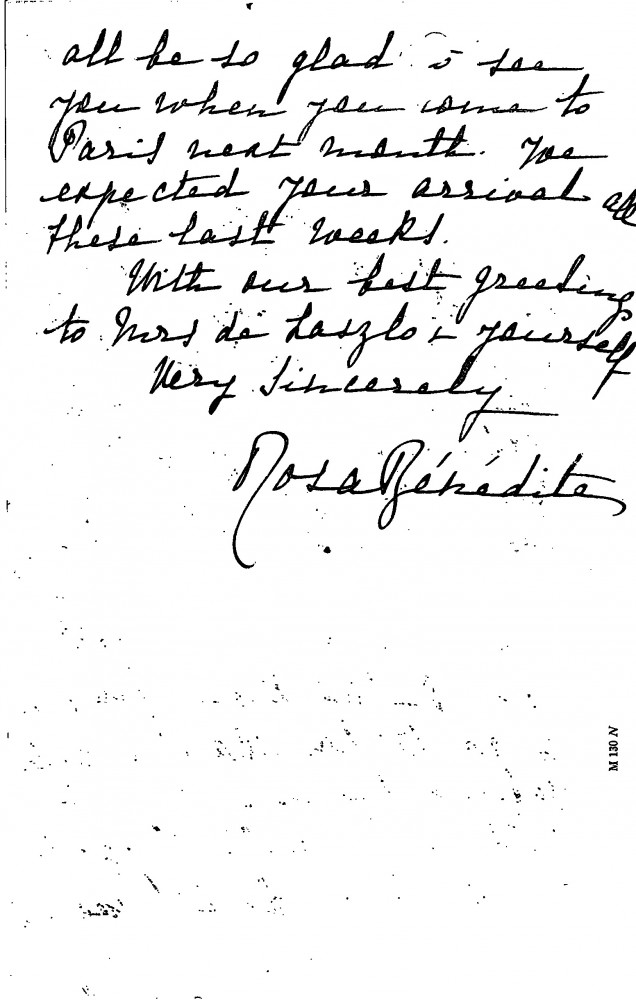 all be so glad to see
you when you come to
Paris next month. We
expected your arrival all
these last weeks.
With our best greetings
to Mrs de Laszlo & yourself
Very Sincerely
Rosa Bénédite
M 130 N